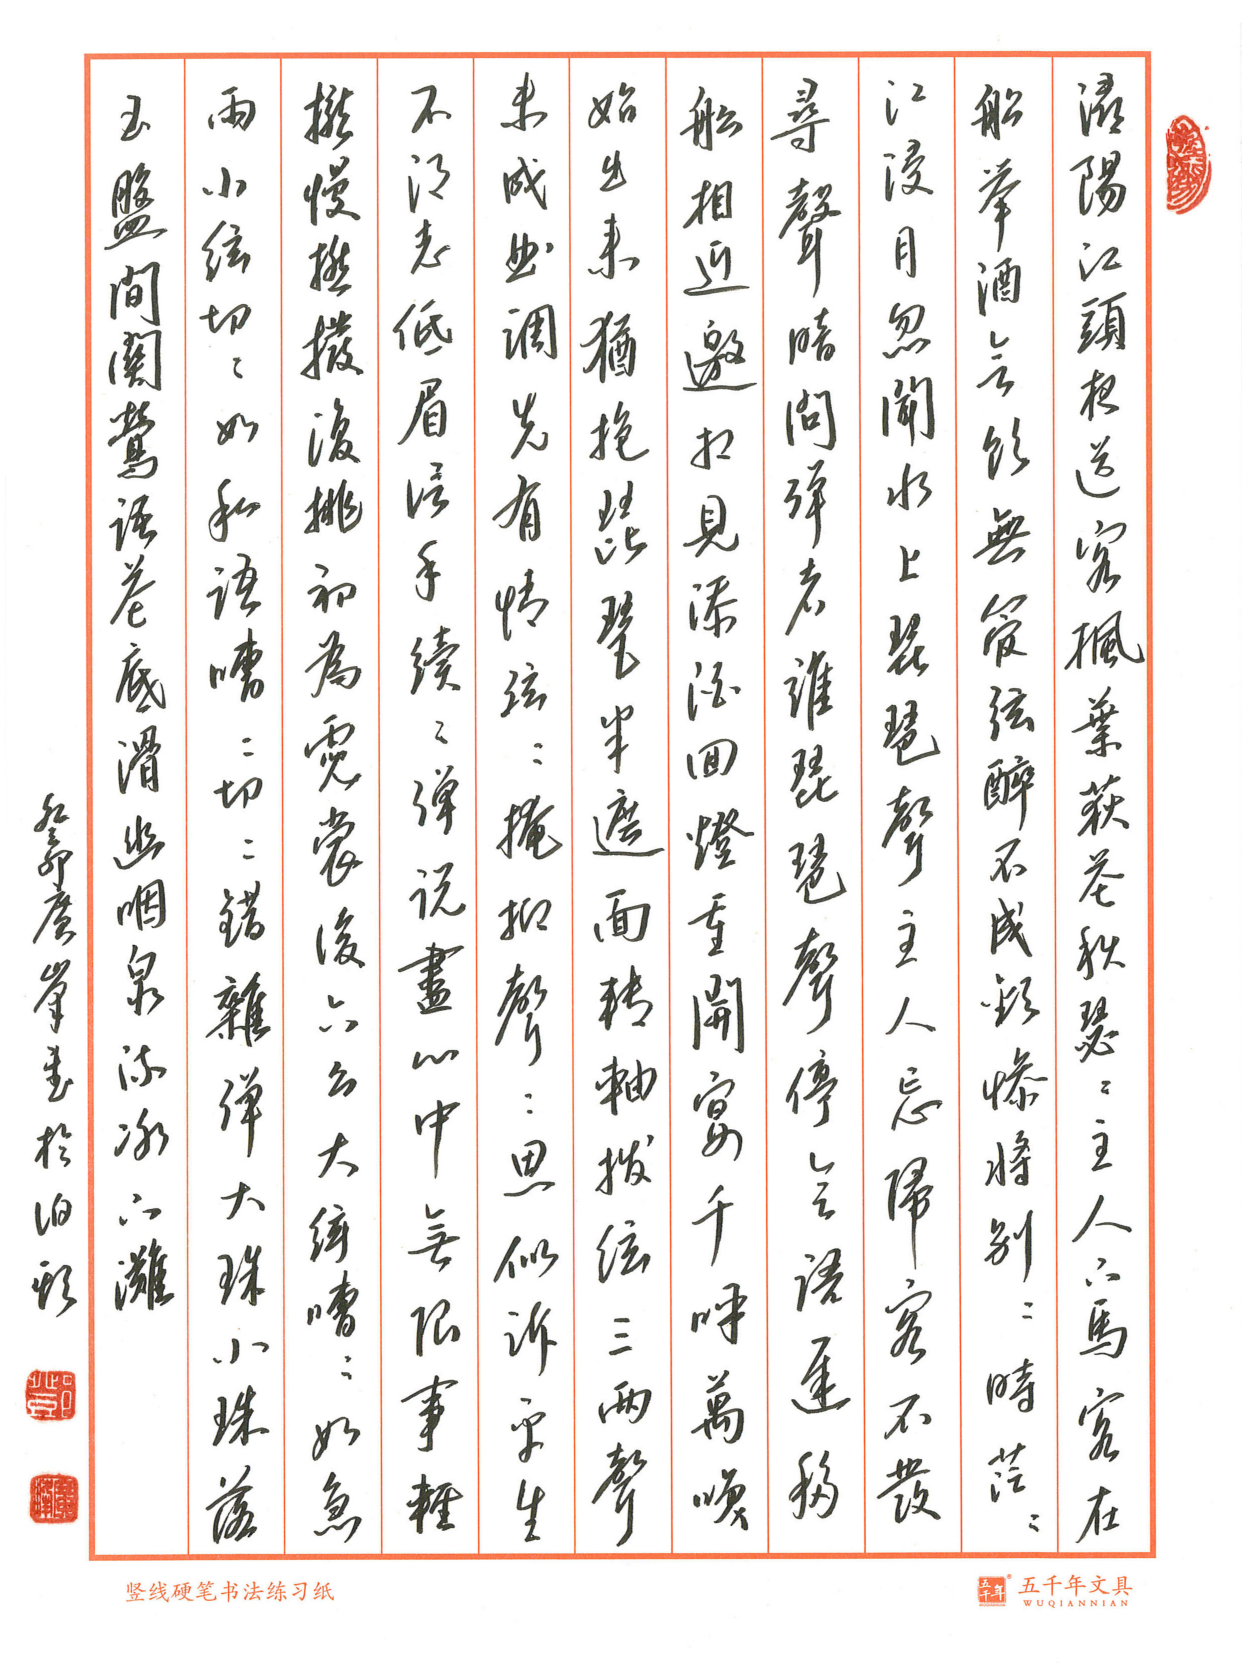 潯陽江頭夜送客楓葉荻花秋瑟〻主人下馬客在
船舉酒欲飲無管弦醉不成歡慘將別〻時茫〻
江浸月忽聞水上琵琶聲主人忘歸客不發
尋聲暗問彈者誰琵琶聲停欲語遲移
船相近邀相見添酒回燈重開宴千呼萬喚
始出來猶抱琵琶半遮面轉軸撥弦三兩聲
未成曲調先有情弦〻掩抑聲〻思似訴平生
不得志低眉信手續〻彈說盡心中無限事輕
攏慢撚撥復挑初為霓裳後六幺大弦嘈〻如急
雨小弦切〻如私語嘈〻切〻錯雜彈大珠小珠落
玉盤間關鶯語花底滑幽咽泉流冰下灘
癸卯廣峯書於泊頭
竖线硬笔书法练习纸
五千年文具
WUQIANNIAN